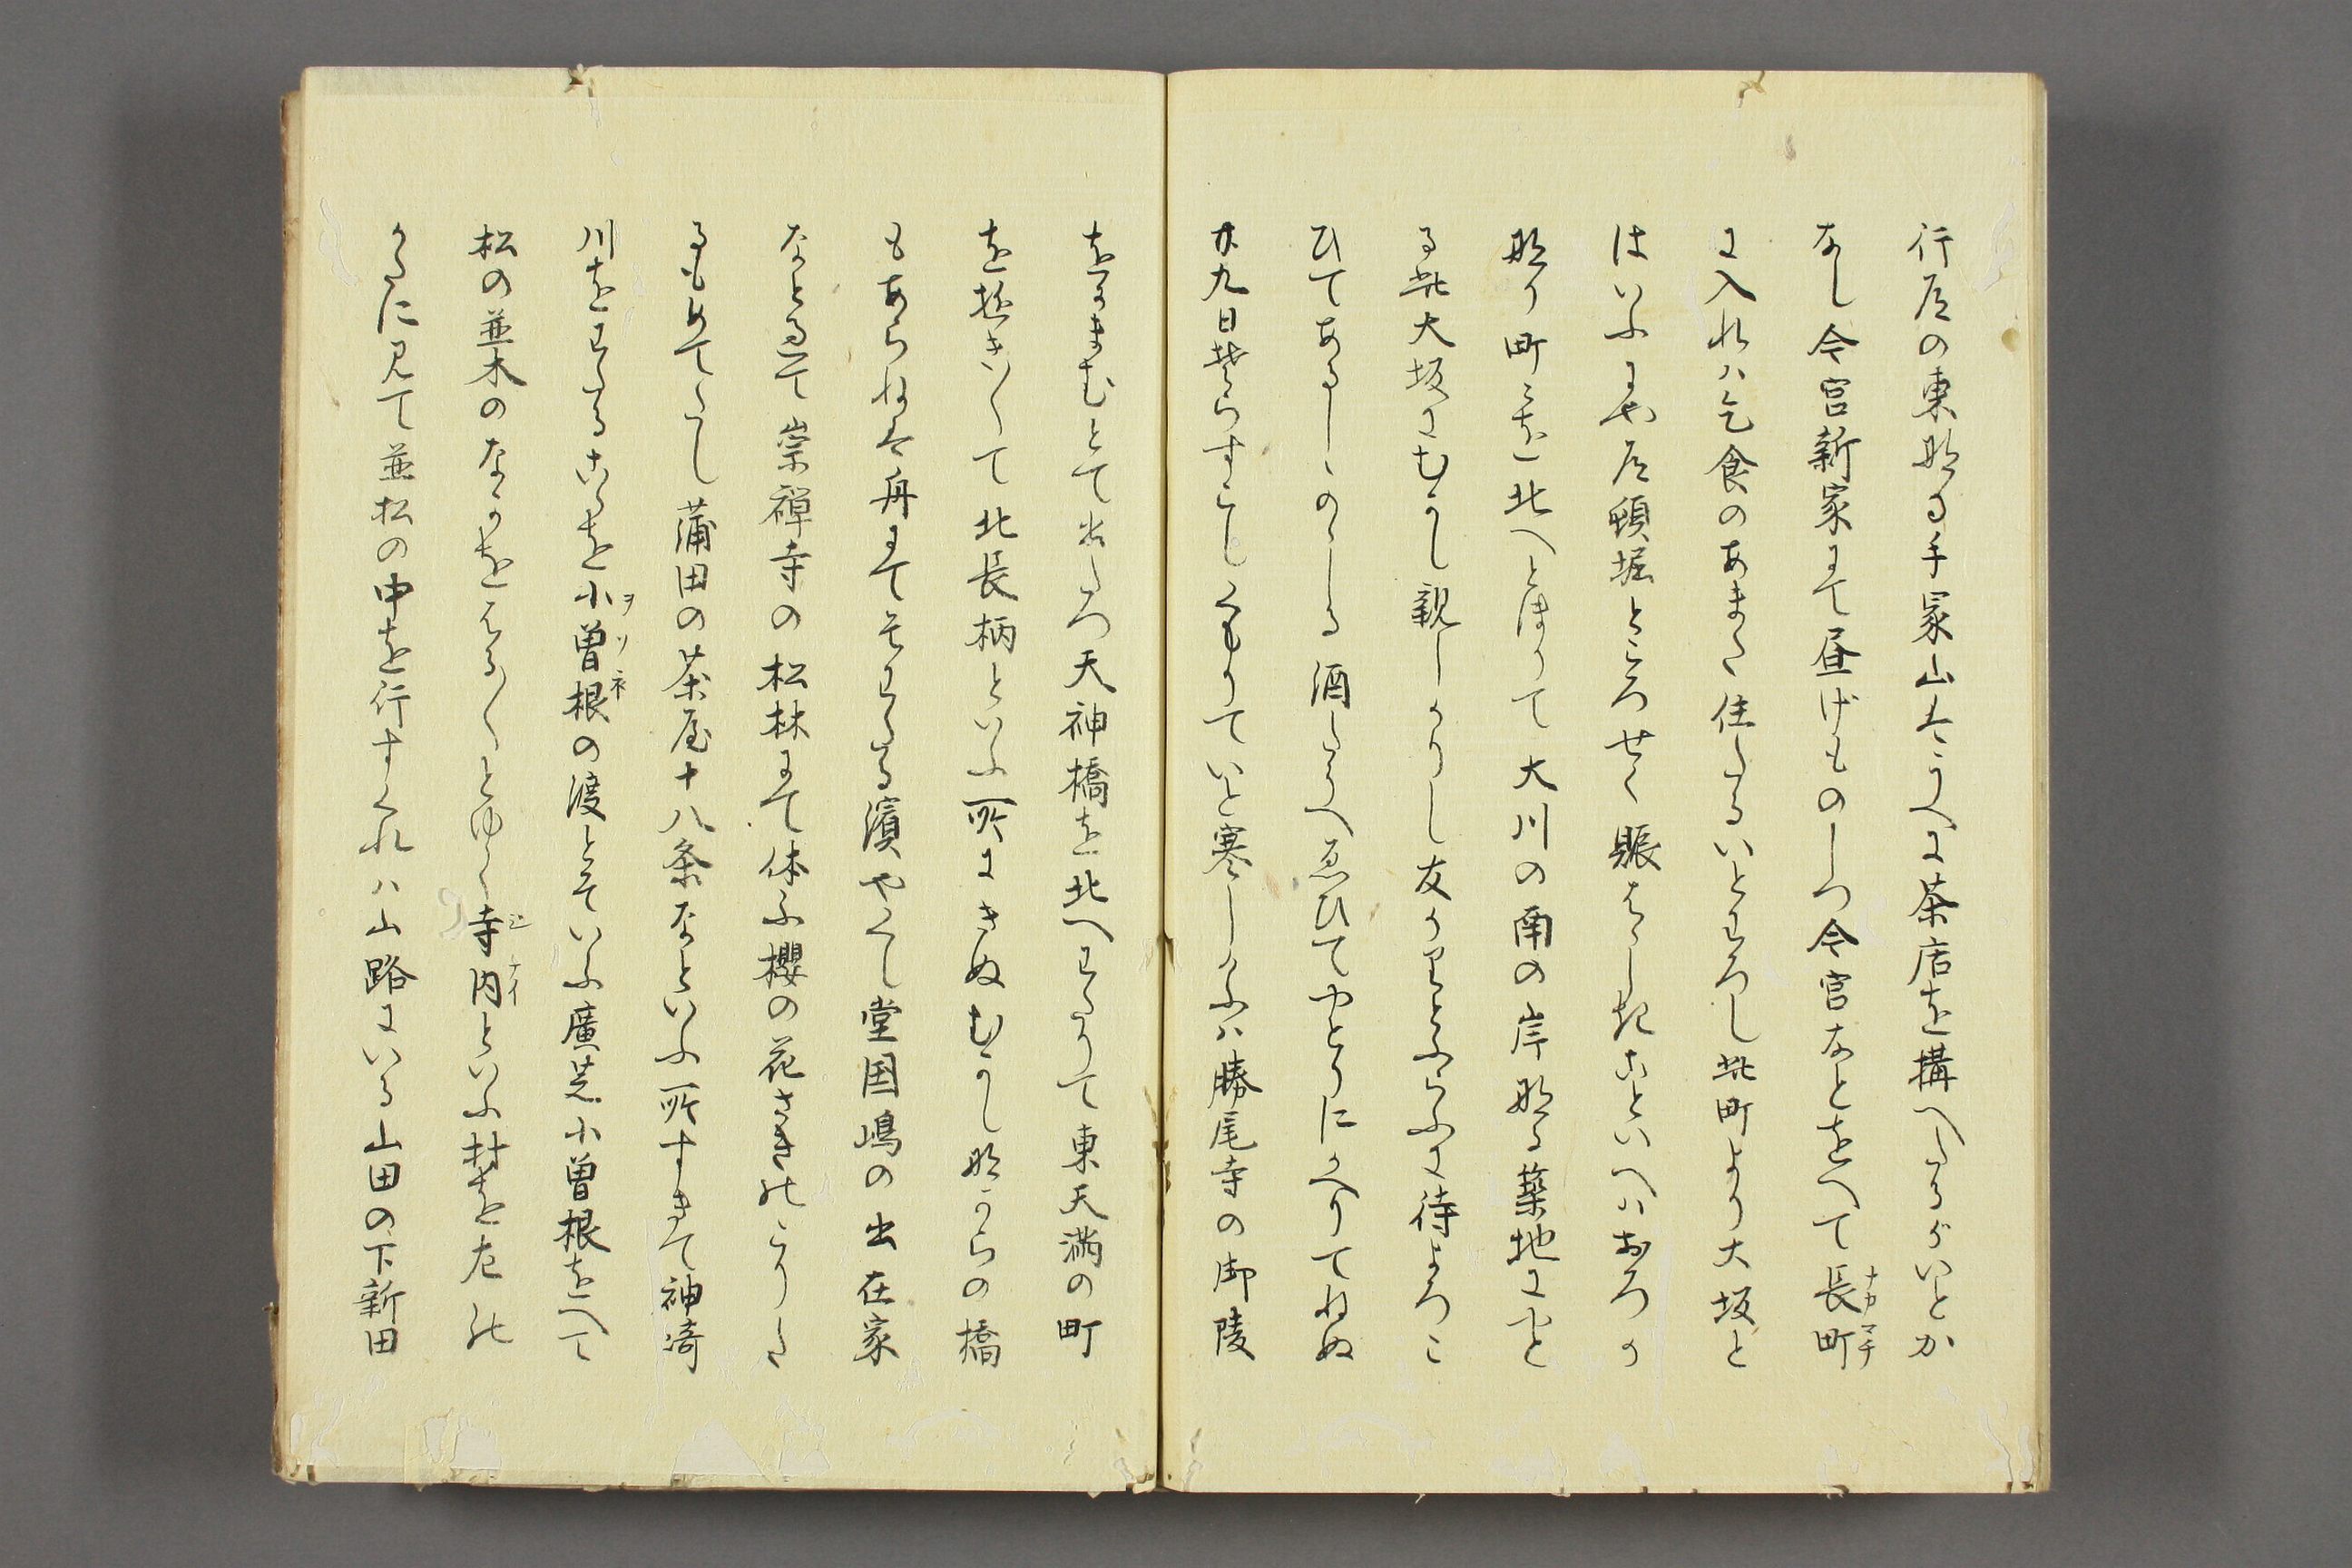 行道の東なる手冢山はうへに茶店を構へたるがいとか
なし今宮新家にて昼げものしつ今宮などをへて長町
に入れハ乞食のあまた住たるいとわろし此町より大坂と
はいふにや道頓堀ところせく賑はしきこといへハおろか
なり町を北へとほりて大川の南の岸なる築地にやと
る此大坂にむかし親しかりし友かりとふらふに待よろこ
ひてあるしのゝしる酒たうへゑひてやとりにかへりてねぬ
廿九日照らすらしくもりていと寒しけふハ勝尾寺の御陵
ををかまむとて出たつ天神橋を北へわたりて東天満の町
を過きゆくて北長柄といふ所にきぬむかしながらの橋
もあらねは舟にてそわたる濱やくし堂国嶋の出在家
なとを過て崇禅寺の松林にて休ふ櫻の花さきのこりた
るもめてたし蒲田の茶屋十八条なといふ所すきて神崎
川をわたるこゝを小曽根の渡とそいふ廣芝小曽根をへて
松の並木のなかをはる〳〵とゆく寺内といふ村を左の
かたに見て並松の中を行すくれハ山路にいる山田の下新田